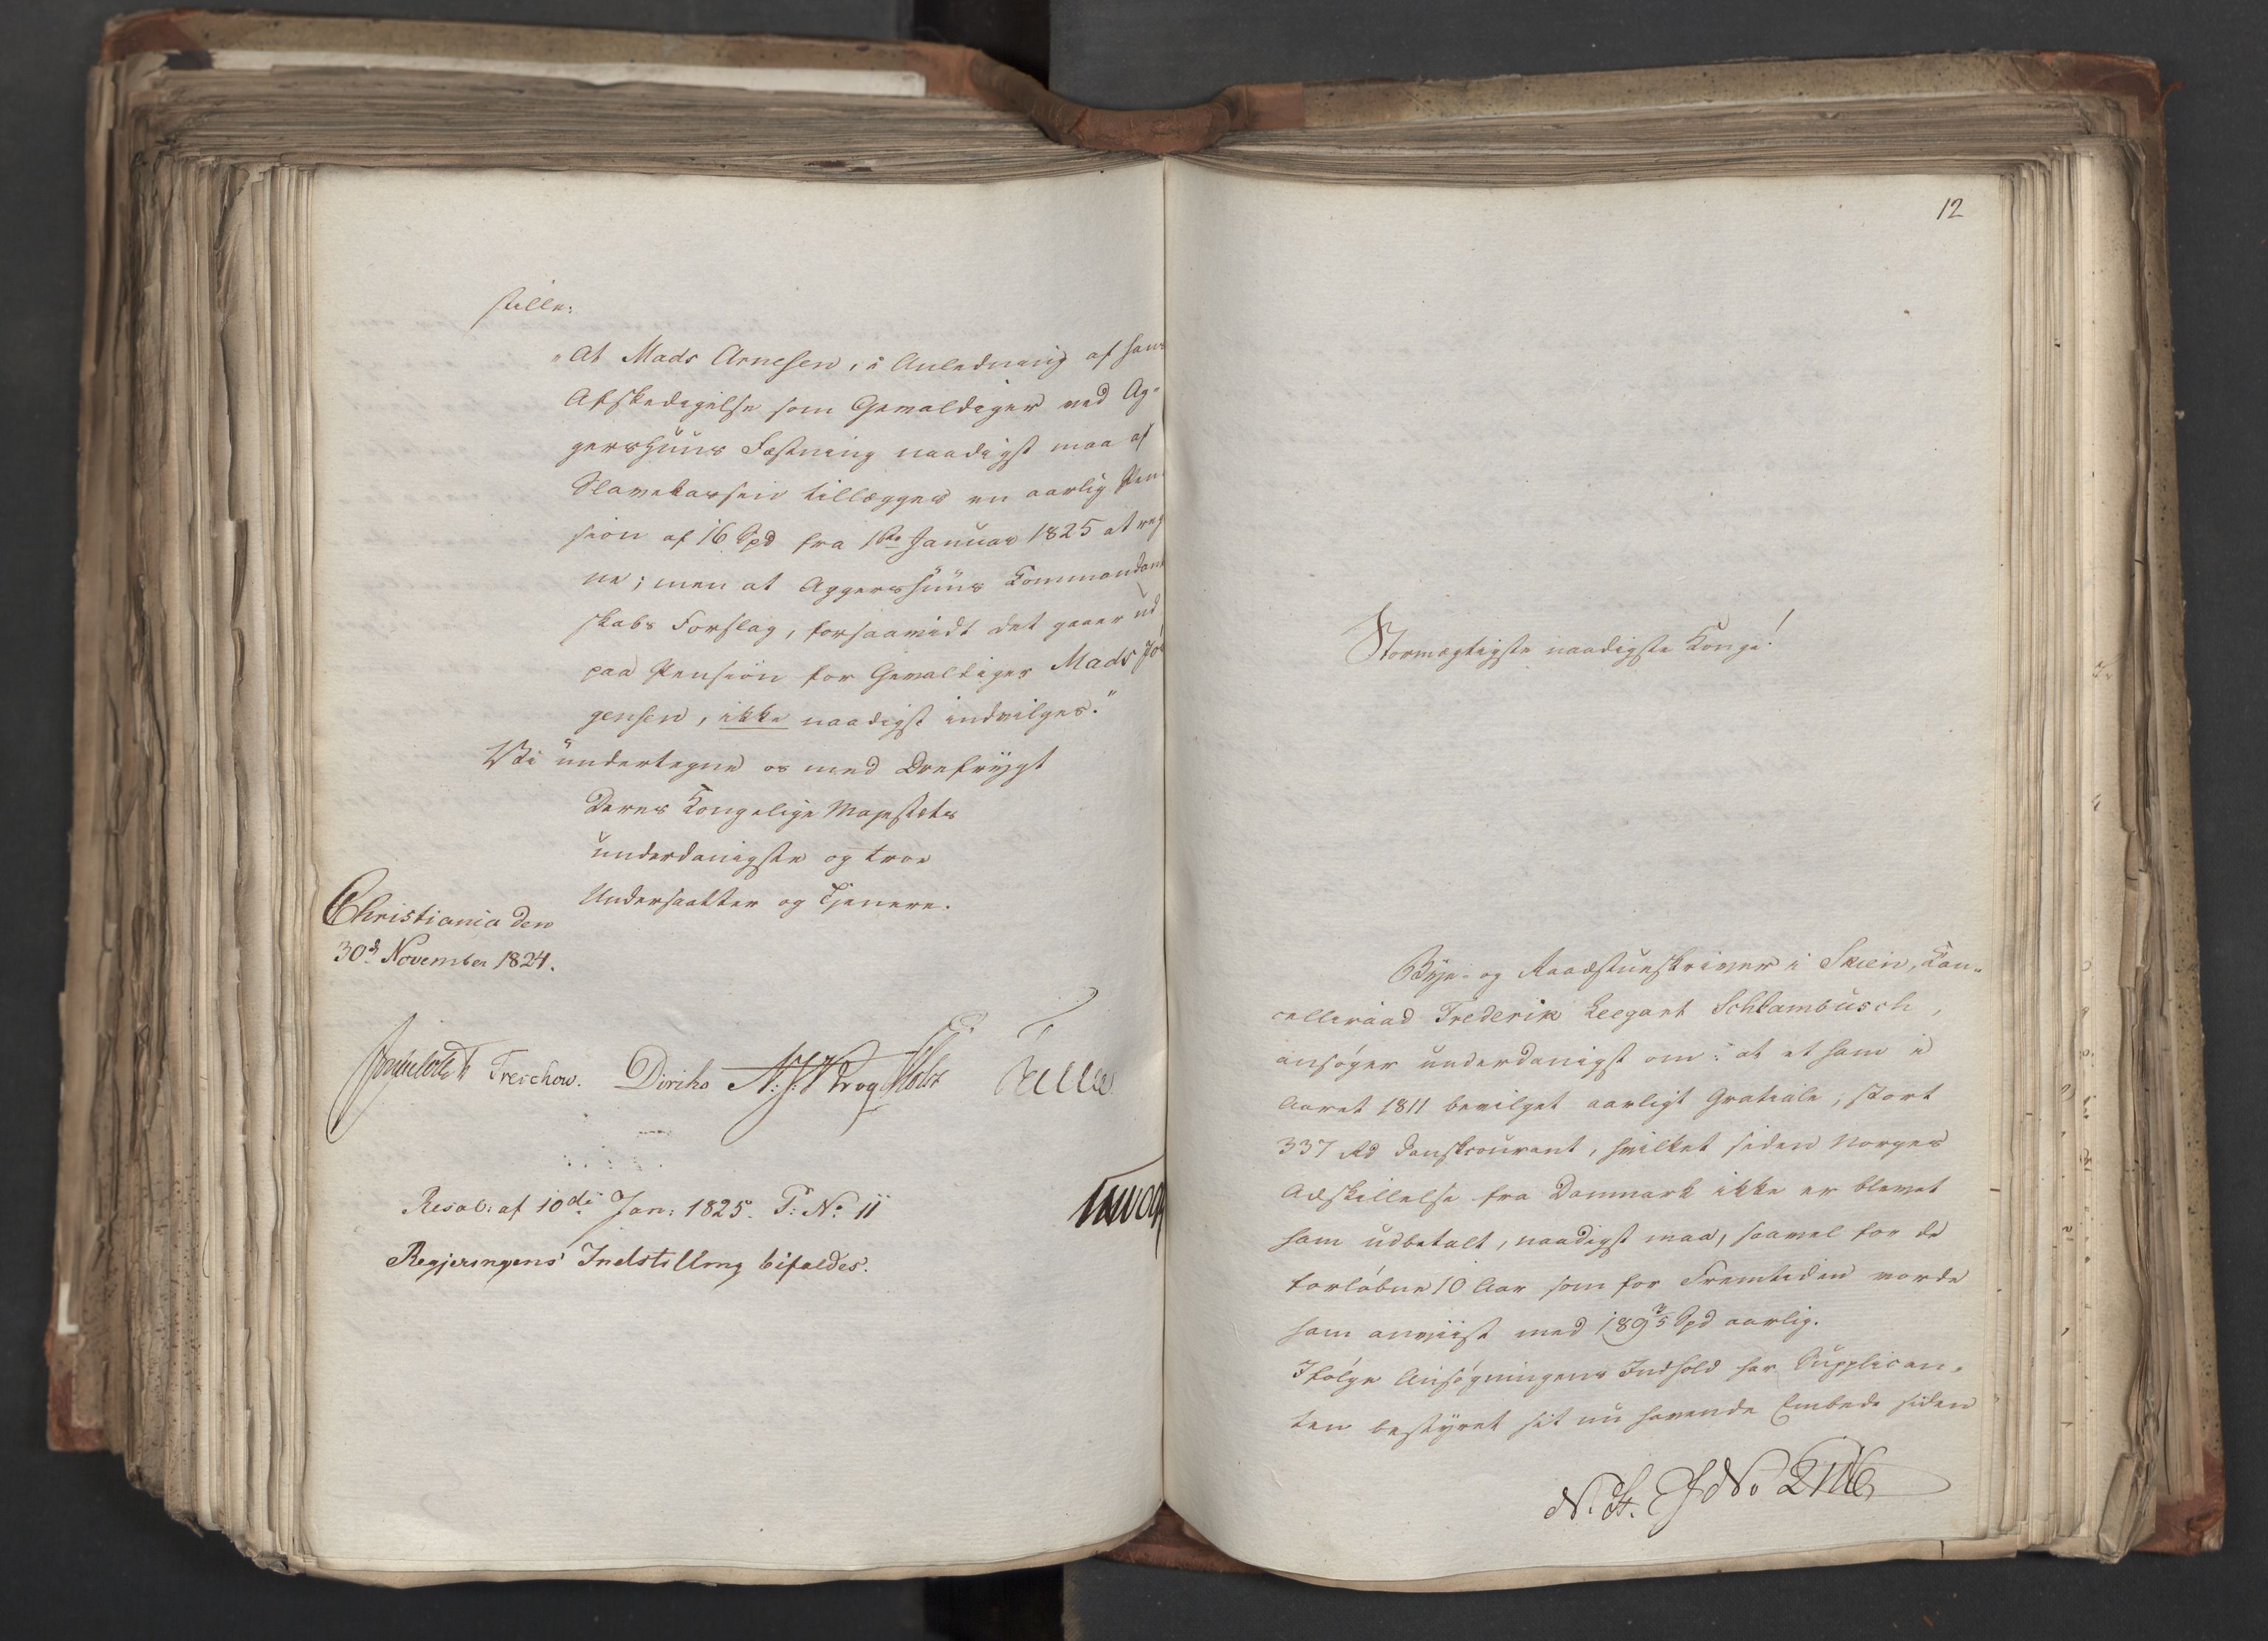 stille:
"At Mads Arnesen, i Anledning af hans
Afskedigelse som Gevaldiger ved Ag-
gershuus Fæstning naadigst maa af
Slavekassen tillægges en aarlig Pen-
sion af 16 Spd fra 1ste Januar 1825 at reg
ne; men at Aggershuus Kommandant
skabs Forslag, forsaavidt det gaaer ud
paa Pension for Gevaldiger Mads Jör
gensen, ikke naadigst indvilges."
Vi undertegne os med Drefrygt
Deres Kongelige Majestæts
underdanigste og troe
Undersaatter og Tjenere.
Christiania den
30d November 1824.
Treschow. Diriks Krog Holst
Resol: af 10de Jan: 1825. P: No 11
Regjeringens Indstilling bifaldes.
12
Stormægtigste naadigste Konge!
Bye- og Raadstueskriver i Skien, Kan-
celliraad Frederik Leegart Schlambusch,
ansøger underdanigst om: at et ham i
Aaret 1811 bevilget aarligt Gratiale, stort
337 Rd Danskcourant, hvilket siden Norges
Adskillelse fra Danmark ikke er blevet
ham udbetalt, naadigst maa, saavel for de
forløbne 10 Aar som for Fremtiden vorde
ham anviist med 189 3/5 Spd aarlig.
Ifølge Ansøgningens Indhold har Supplican-
ten bestyret sit nu havende Embede siden